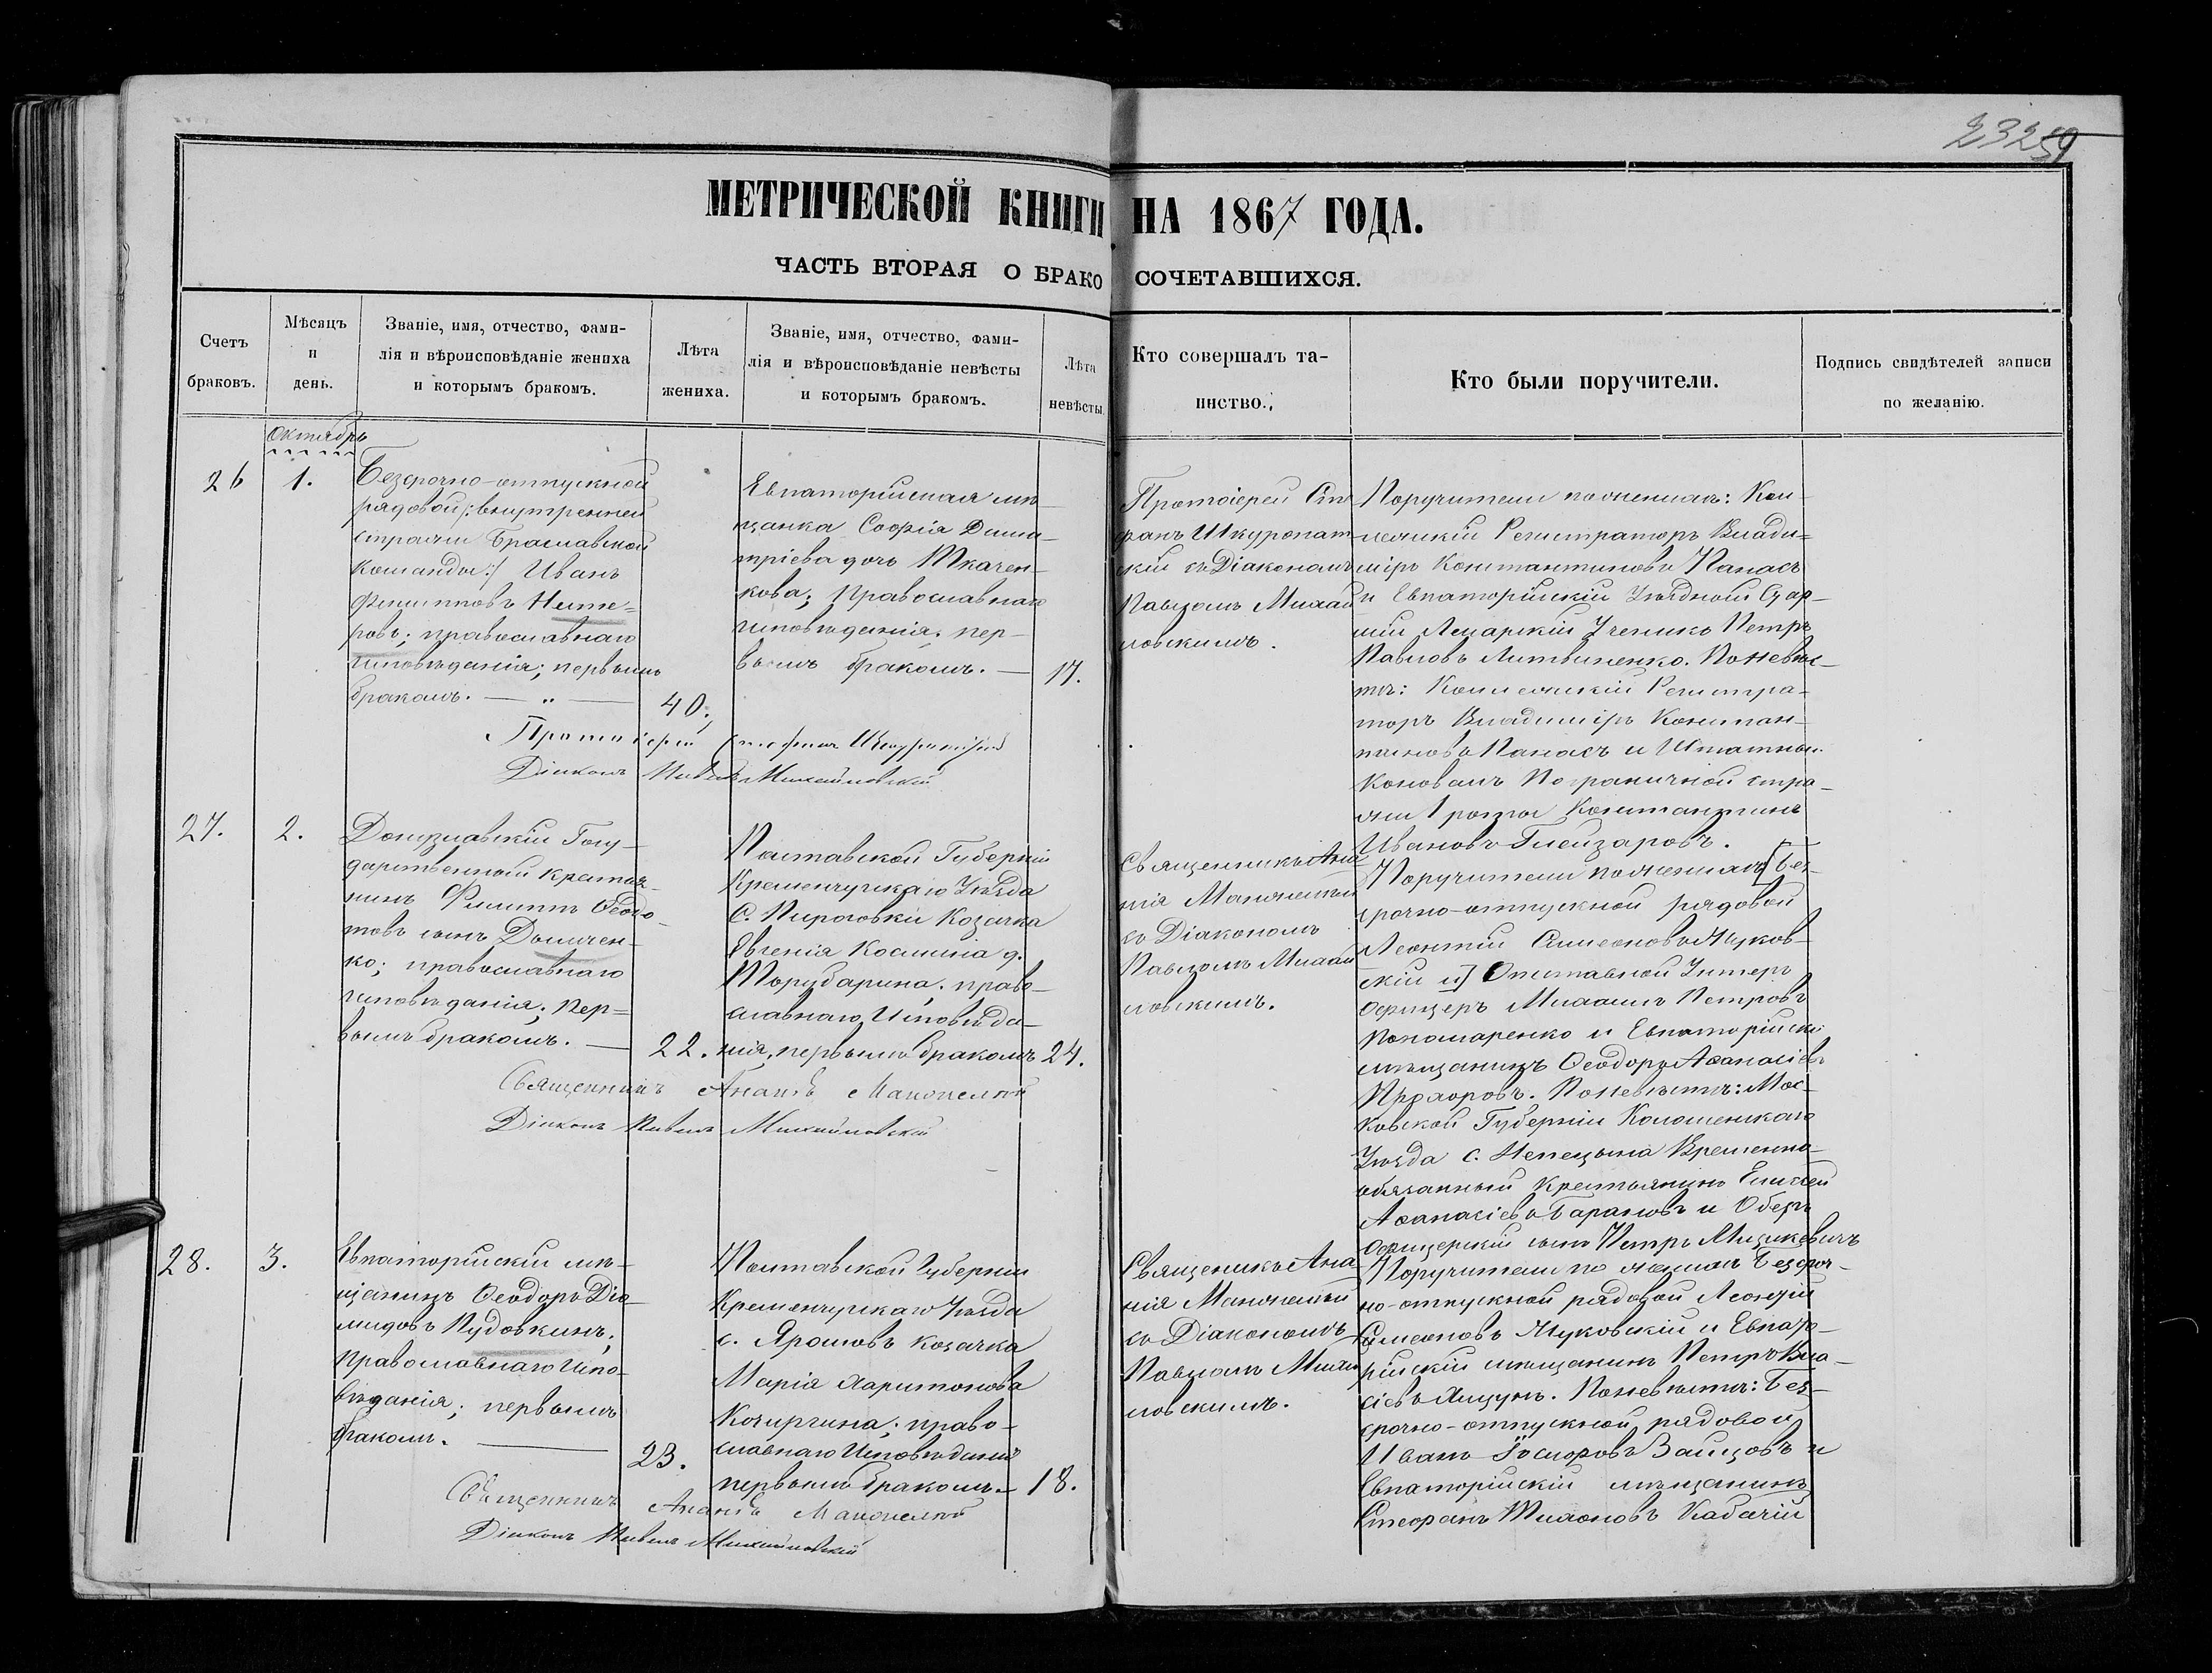 23259
МЕТРИЧЕСКОЙ КНИГИ НА 1867 ГОДА.
ЧАСТЬ ВТОРАЯ О БРАКОСОЧЕТАВШИХСЯ.
Счетъ
браковъ.
Мѣсяцъ
и
день.
Званіе, имя, отчество, фами-
лія и вѣроисповѣданіе жениха
и которымъ бракомъ.
Лѣта
жениха.
Званіе, имя, отчество, фами-
лія и вѣроисповѣданіе невѣсты
и которымъ бракомъ.
Лѣта
невѣсты.
Кто совершалъ та-
инство.
Кто были поручители.
Подпись свидѣтелей записи
по желанію.
Октябрь
26
1.
Безсрочно-отпускной
рядовой /:внутренней
стражи Браславской
Команды:/ Иванъ
Филипповъ
ровъ; православнаго
исповѣданія; первымъ
бракомъ. — „ —
40.
Евпаторійская мѣ-
щанка Софія Дими-
тріева дочь Ткачен-
кова; Православнаго
исповѣданія, пер-
вымъ бракомъ. —
17.
Протоіерей Сте-
фанъ Шкуропат-
скій съ Діакономъ
Павломъ Михай-
ловскимъ.
Поручители по женихѣ: Кол-
лежскій Регистраторъ Влади=
міръ Константиновъ Папасъ
и Евпаторійскій Уѣздный Стар-
шій Лекарскій Ученикъ Петръ
Павловъ Литвиненко. По невѣс-
тѣ: Коллежскій Регистра-
торъ Владиміръ Констан-
тиновъ Папасъ и Штатный
Коновалъ Пограничной стра-
жи 1 роты Константинъ
Ивановъ Глейзаровъ.
Протоіерей Стефанъ Шкуропатскій
Діаконъ Павелъ Михайловскій
27.
2.
Донузлавскій Госу-
дарственный крестья-
нинъ Филиппъ Ѳедо-
товъ сынъ
ко; православнаго
исповѣданія; пер=
вымъ бракомъ. —
22.
Полтавской Губерніи
Кременчугскаго Уѣзда
С. Пироговки Козачка
Евгенія Космина д.
Торубарина; право-
славнаго Исповѣда-
нія, первымъ бракомъ
24.
Священникъ Ана-
нія
съ Діакономъ
Павломъ Михай-
ловскимъ.
Поручители по женихѣ [Без-
срочно-отпускной рядовой
Леонтій Симеоновъ Жуков-
скій и] Отставной Унтеръ
офицеръ Михаилъ Петровъ
Пономаренко и Евпаторійскій
мѣщанинъ Ѳеодоръ Аѳанасіевъ
Прохоровъ. По невѣстѣ: Мос-
ковской Губерніи Коломенскаго
Уѣзда с. Непецына Временно-
обязанный Крестьянинъ Елисей
Аѳанасіевъ Барановъ и Оберъ
офицерскій сынъ Петръ Мицкевичъ
Священникъ Ананія
Діаконъ Павелъ Михайловскій
28.
3.
Евпаторійскій мѣ-
щанинъ Ѳеодоръ Діо-
мидовъ Пудовкинъ;
православнаго Испо-
вѣданія; первымъ
бракомъ. —
23.
Полтавской Губерніи
Кременчугскаго Уѣзда
с. козачка
Марія Харитонова
Кочиргина; право-
славнаго Исповѣданія
первымъ бракомъ. —
18.
Священикъ Ана-
нія
съ Діакономъ
Павломъ Михай-
ловскимъ.
Поручители по женихѣ Безсроч-
но-отпускной рядовой Леонтій
Симеоновъ Жуковскій и Евпато-
рійскій мѣщанинъ Петръ Вла-
сіевъ Яцунъ. По невѣстѣ: Без-
срочно-отпускной рядовой
Иванъ Зайцовъ и
Евпаторійскій мѣщанинъ
Стефанъ Тихоновъ Кабачій
Священникъ Ананія
Діаконъ Павелъ Михайловскій